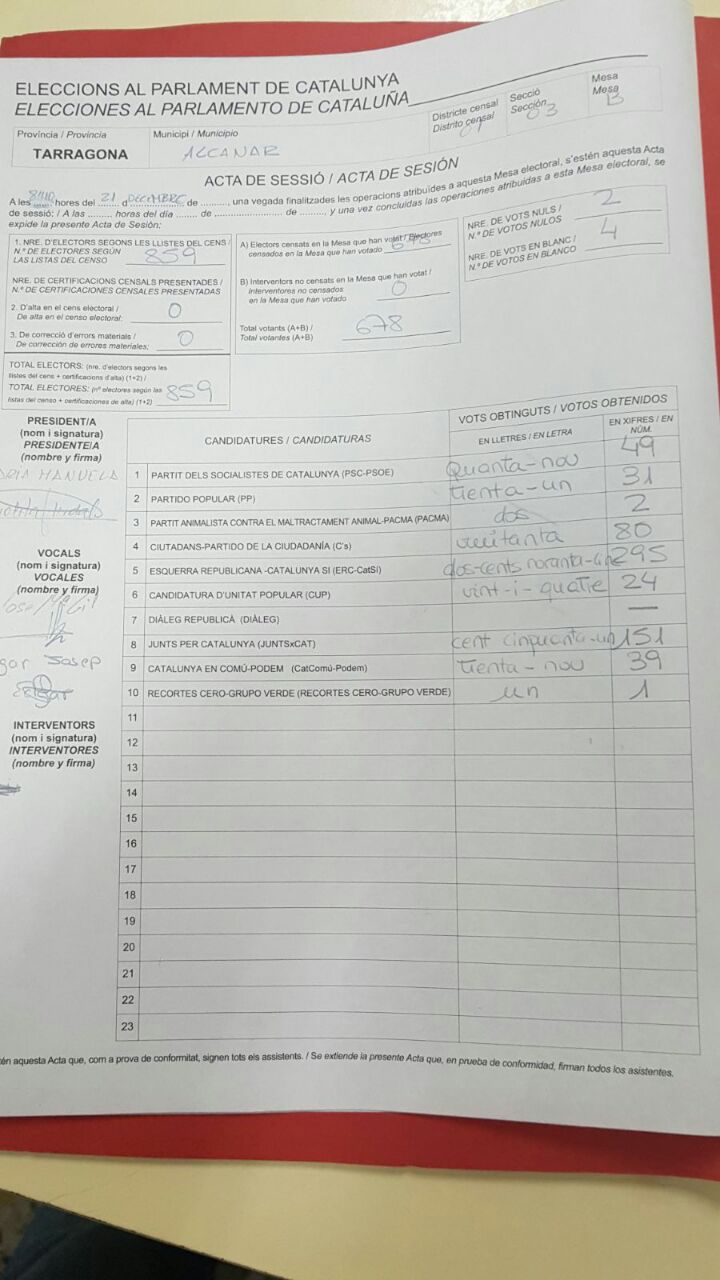 ELECCIONS AL PARLAMENT DE CATALUNYA
ELECCIONES AL PARLAMENTO DE CATALUÑA
Districte censal
Distrito censal
01
Secció
Sección
03
Mesa
Mesa
B
Província / Provincia
TARRAGONA
Municipi / Municipio
ALCANAR
ACTA DE SESSIÓ / ACTA DE SESIÓN
A les ........ hores del 21 d DECEMBRE de ........., una vegada finalitzades les operacions atribuïdes a aquesta Mesa electoral, s'estén aquesta Acta
de sessió: / A las ......... hores del día ........ de ........................ de ........., y una vez concluidas las operaciones atribuidas a esta Mesa electoral, se
expide la presente Acta de Sesión:
1. NRE. D'ELECTORS SEGONS LES LLISTES DEL CENS /
N.º DE ELECTORES SEGÚN
LAS LISTAS DEL CENSO
859
NRE. DE CERTIFICACIONS CENSALS PRESENTADES /
N.º DE CERTIFICACIONES CENSALES PRESENTADAS
2. D'alta en el cens electoral /
De alta en el censo electoral:
0
3. De correcció d'errors materials /
De corrección de errores materiales:
0
TOTAL ELECTORS: (nre. d'electors segons les
llistes del cens + certificacions d'alta) (1+2) /
TOTAL ELECTORES: (nº electores según las
listas del censo + certificaciones de alta) (1+2)
859
A) Electors censats en la Mesa que han votat / Electores
censados en la Mesa que han votado
678
B) Interventors no censats en la Mesa que han votat /
Interventores no censados
en la Mesa que han votado
0
Total votants (A+B) /
Total votantes (A+B)
678
NRE. DE VOTS NULS /
N.º DE VOTOS NULOS
2
NRE. DE VOTS EN BLANC /
N.º DE VOTOS EN BLANCO
4
PRESIDENT/A
(nom i signatura)
PRESIDENTE/A
(nombre y firma)
MANUELA
VOCALS
(nom i signatura)
VOCALES
(nombre y firma)
Josep
INTERVENTORS
(nom i signatura)
INTERVENTORES
(nombre y firma)
CANDIDATURES / CANDIDATURAS
VOTS OBTINGUTS / VOTOS OBTENIDOS
EN LLETRES / EN LETRA
EN XIFRES / EN NÚM.
1 PARTIT DELS SOCIALISTES DE CATALUNYA (PSC-PSOE) Quanta-nou 49
2 PARTIDO POPULAR (PP) trenta-un 31
3 PARTIT ANIMALISTA CONTRA EL MALTRACTAMENT ANIMAL-PACMA (PACMA) dos 2
4 CIUTADANS-PARTIDO DE LA CIUDADANÍA (C's) vuitanta 80
5 ESQUERRA REPUBLICANA -CATALUNYA SI (ERC-CatSí) dos-cents noranta-cinc 295
6 CANDIDATURA D'UNITAT POPULAR (CUP) vint-i-quatre 24
7 DIÀLEG REPUBLICÀ (DIÀLEG) —
8 JUNTS PER CATALUNYA (JUNTSxCAT) cent cinquanta-un 151
9 CATALUNYA EN COMÚ-PODEM (CatComú-Podem) trenta-nou 39
10 RECORTES CERO-GRUPO VERDE (RECORTES CERO-GRUPO VERDE) un 1
11
12
13
14
15
16
17
18
19
20
21
22
23
aquesta Acta que, com a prova de conformitat, signen tots els assistents. / Se extiende la presente Acta que, en prueba de conformidad, firman todos los asistentes.